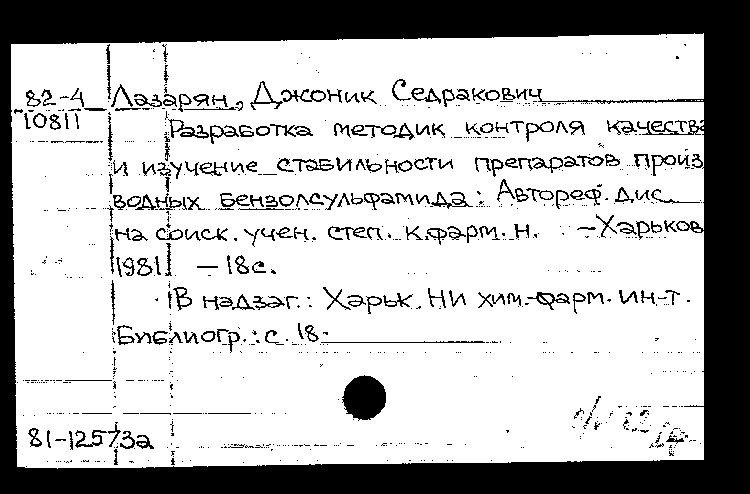 82-4 Лазарян, Джоник Седракович
10811
Разработка методик контроля качества
и изучение стабильности препаратов произ
водных бензолсульфамида: Автореф. дис.
на соиск. учен. степ. к.фарм.н. - Харьков
1981. - 18с.
В надзаг.: Харьк. НИ хим.-фарм. ин-т.
Библиогр.: с. 18.
81-12573а